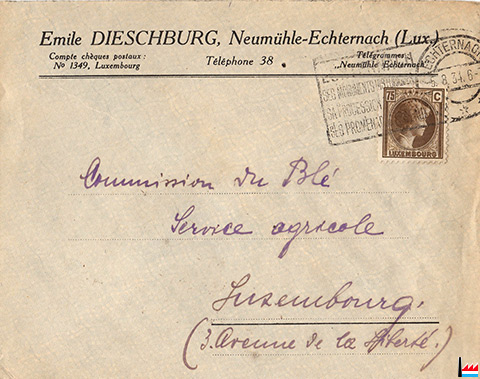 Emile DIESCHBURG, Neumühle-Echternach (Lux.)
Compte chèques postaux :
Nº 1349, Luxembourg
Téléphone 38 .
Télégrammes :
„Neumühle Echternach"
ECHTERNACH
SES MONUMENTS
SA PROCESSION
SES PROMEN
75 C
LUXEMBOURG
Commission du Blé
Service agricole
Luxembourg.
(3. Avenue de la Liberté.)